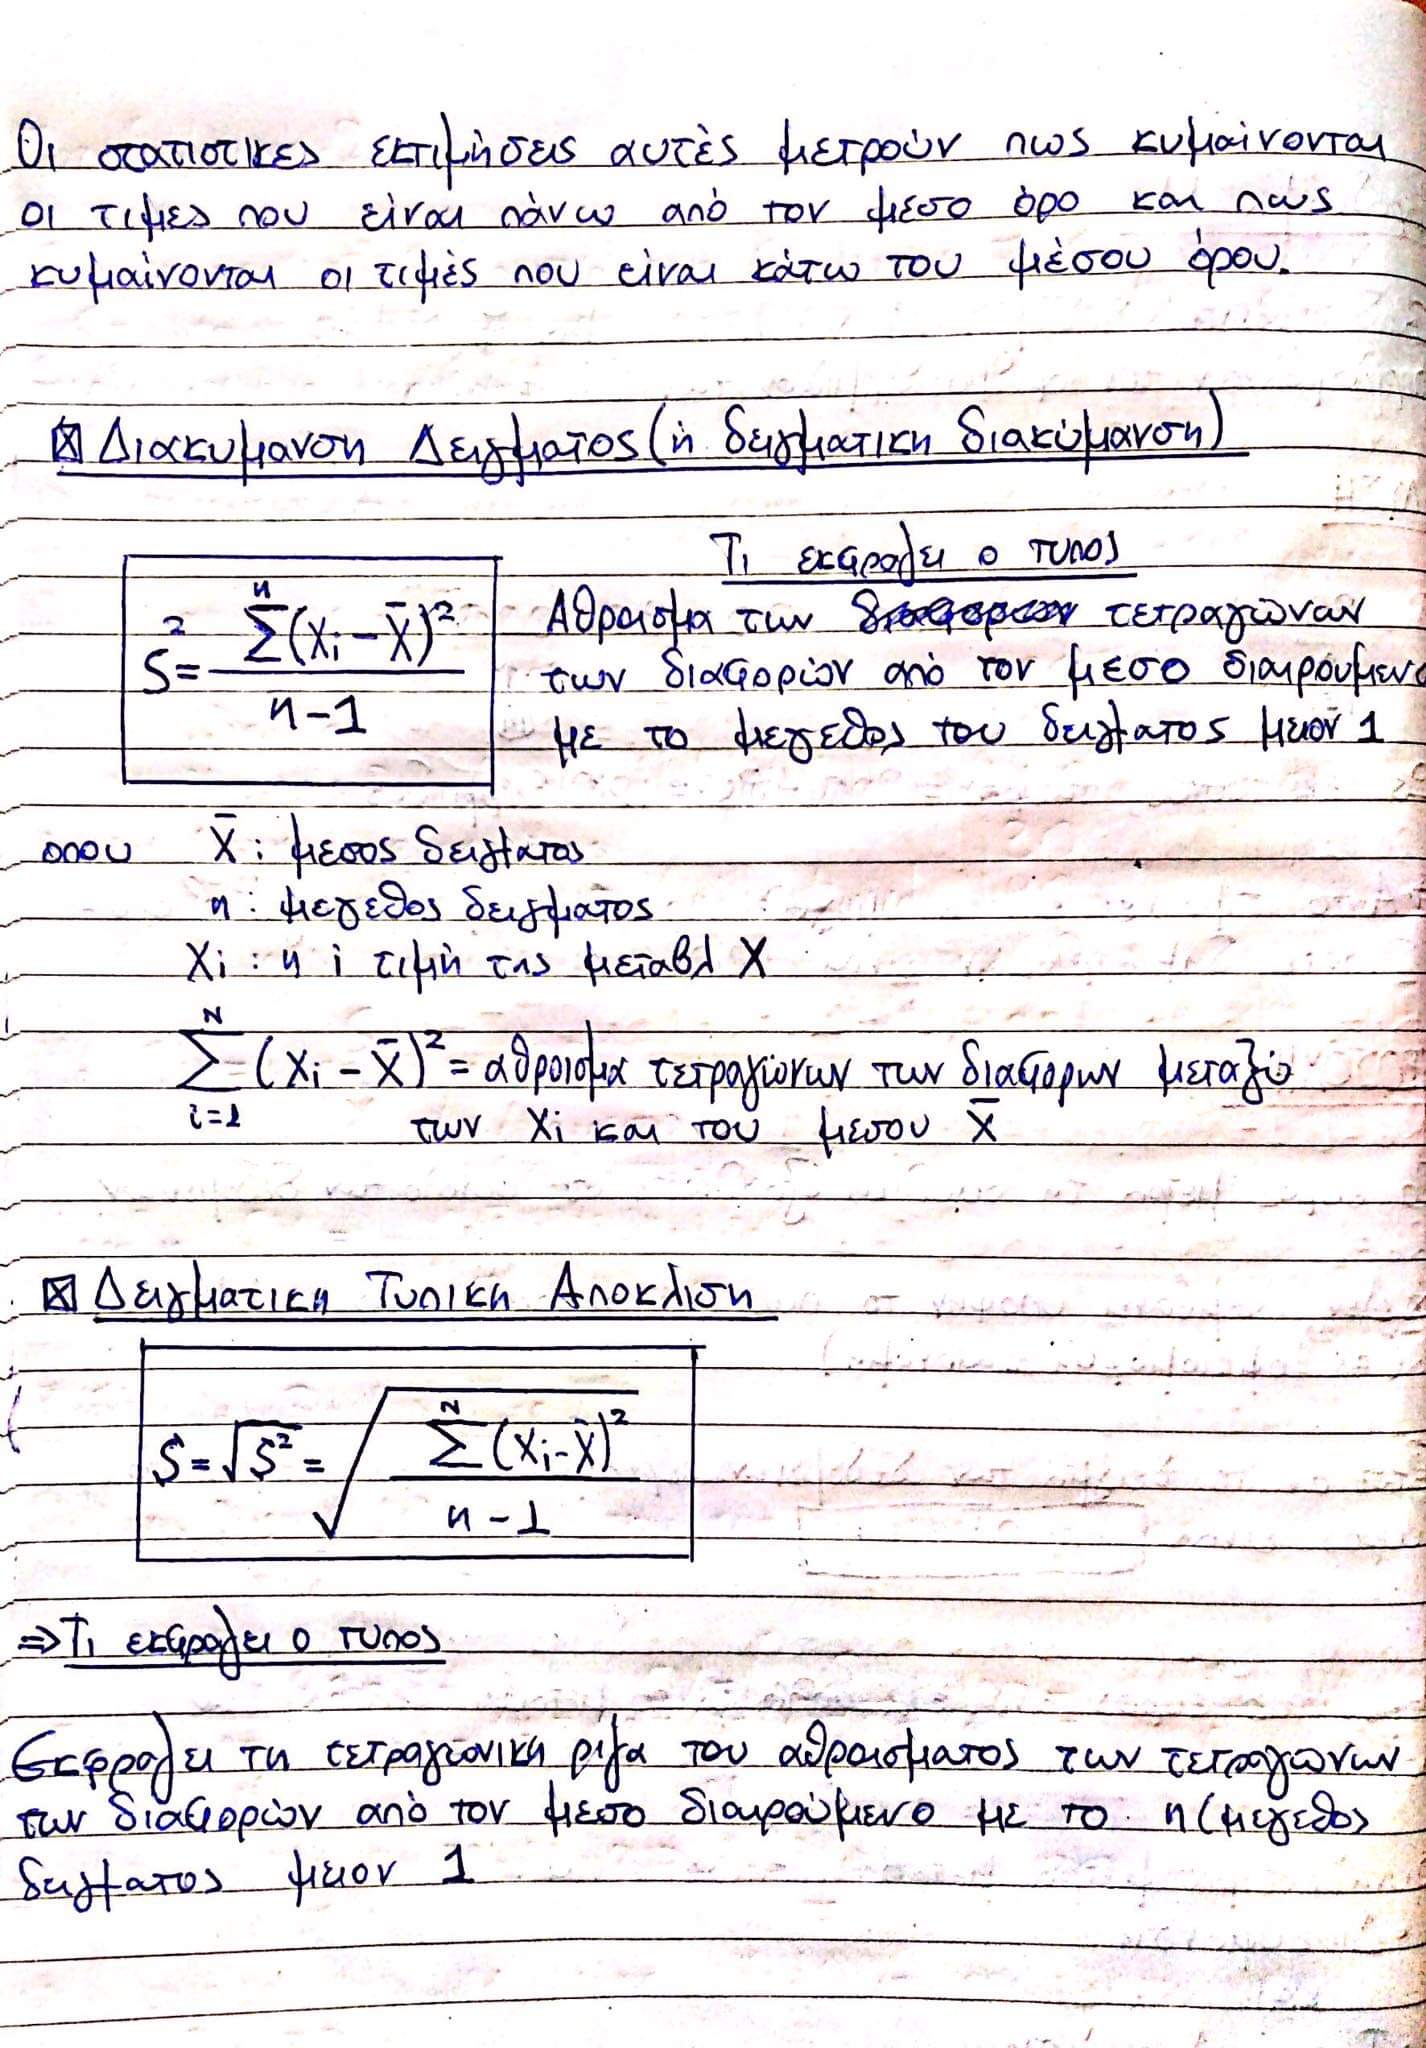 Οι στατιστικες εκτιμήσεις αυτές μετρούν πως κυμαίνονται
οι τιμες που είναι πάνω από τον μεσο όρο και πως
κυμαίνονται οι τιμές που είναι κάτω του μέσου όρου.
Διακυμανση Δειγματος (ή δειγματικη διακύμανση)
Τι εκφραζει ο τυπος
S² = Σⁿ(Xi - X̄)² / n-1
Αθροισμα των τετραγώνων
των διαφορών από τον μεσο διαιρούμενο
με το μεγεθος του δειγματος μειον 1
οπου X̄ : μεσος δειγματος
n : μεγεθος δειγματος
Xi : η i τιμή της μεταβλ X
Σ (i=1, N) (Xi - X̄)² = αθροισμα τετραγώνων των διαφορων μεταξύ
των Xi και του μεσου X̄
Δειγματικη Τυπικη Αποκλιση
S = √S² = √( Σᴺ (Xi - X̄)² / n-1 )
⇒ Τι εκφραζει ο τυπος
Εκφραζει τη τετραγωνικη ριζα του αθροισματος των τετραγώνων
των διαφορών από τον μεσο διαιρούμενο με το n (μεγεθος
δειγματος μειον 1